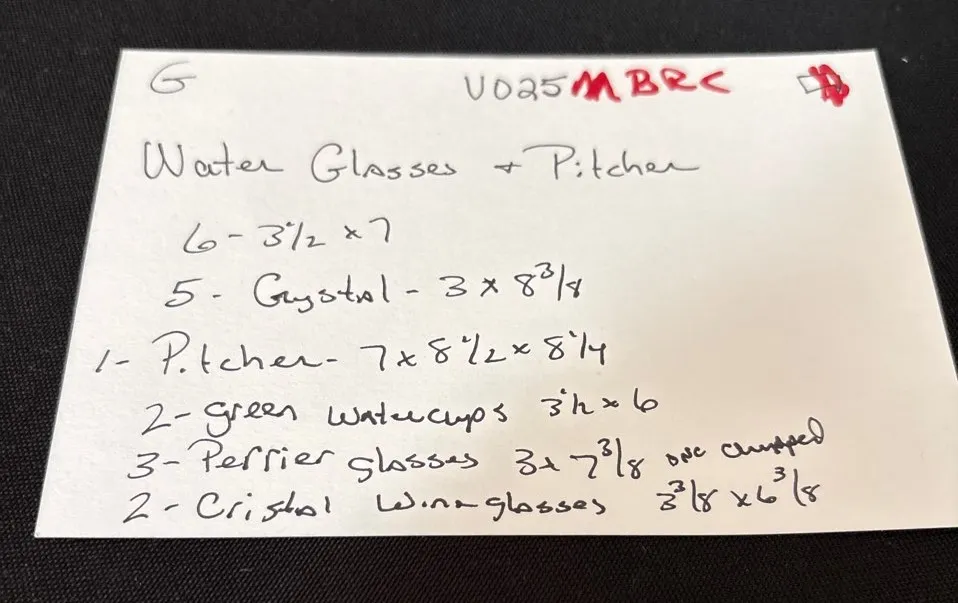 G VO25MBRC
Water Glasses + Pitcher
6 - 3 1/2 x 7
5 - Crystal - 3 x 8 3/8
1 - Pitcher - 7 x 8 1/2 x 8 1/4
2 - green watercups 3 1/2 x 6
3 - Perrier glasses 3 x 7 3/8 one chipped
2 - Cristal wine glasses 3 3/8 x 6 3/8